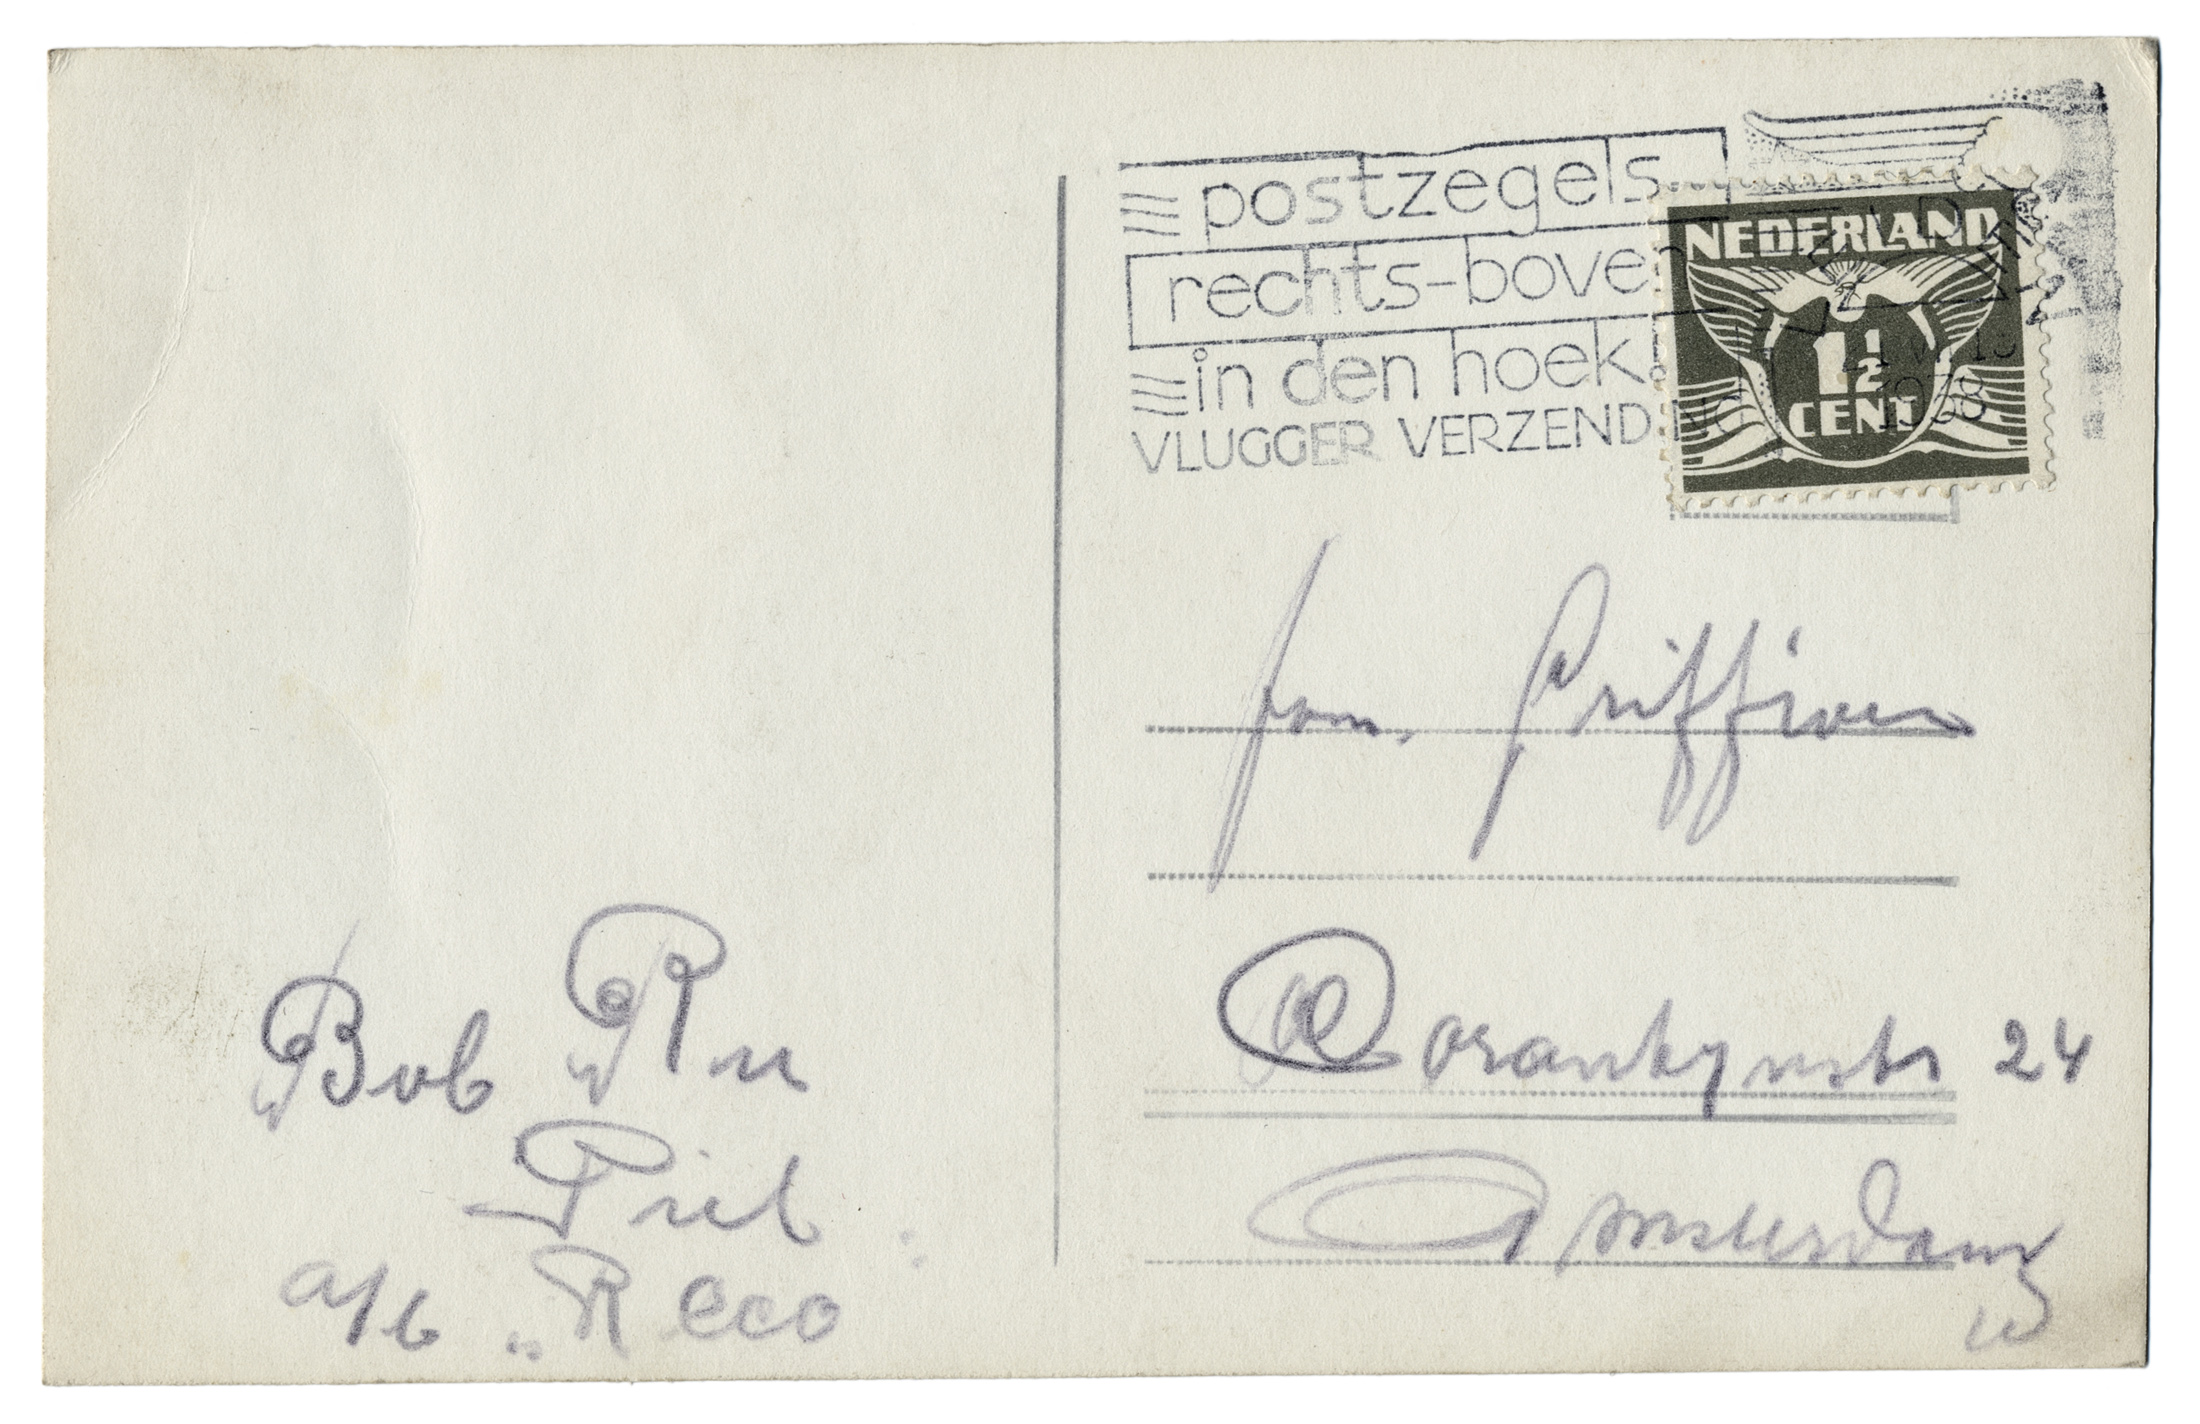 postzegels
rechts-boven
in den hoek!
VLUGGER VERZENDING
NEDERLAND
1½
CENT
1938
fam. Griffioen
24
Amsterdam
W
Bob Ru
Piet
a/b „Reco